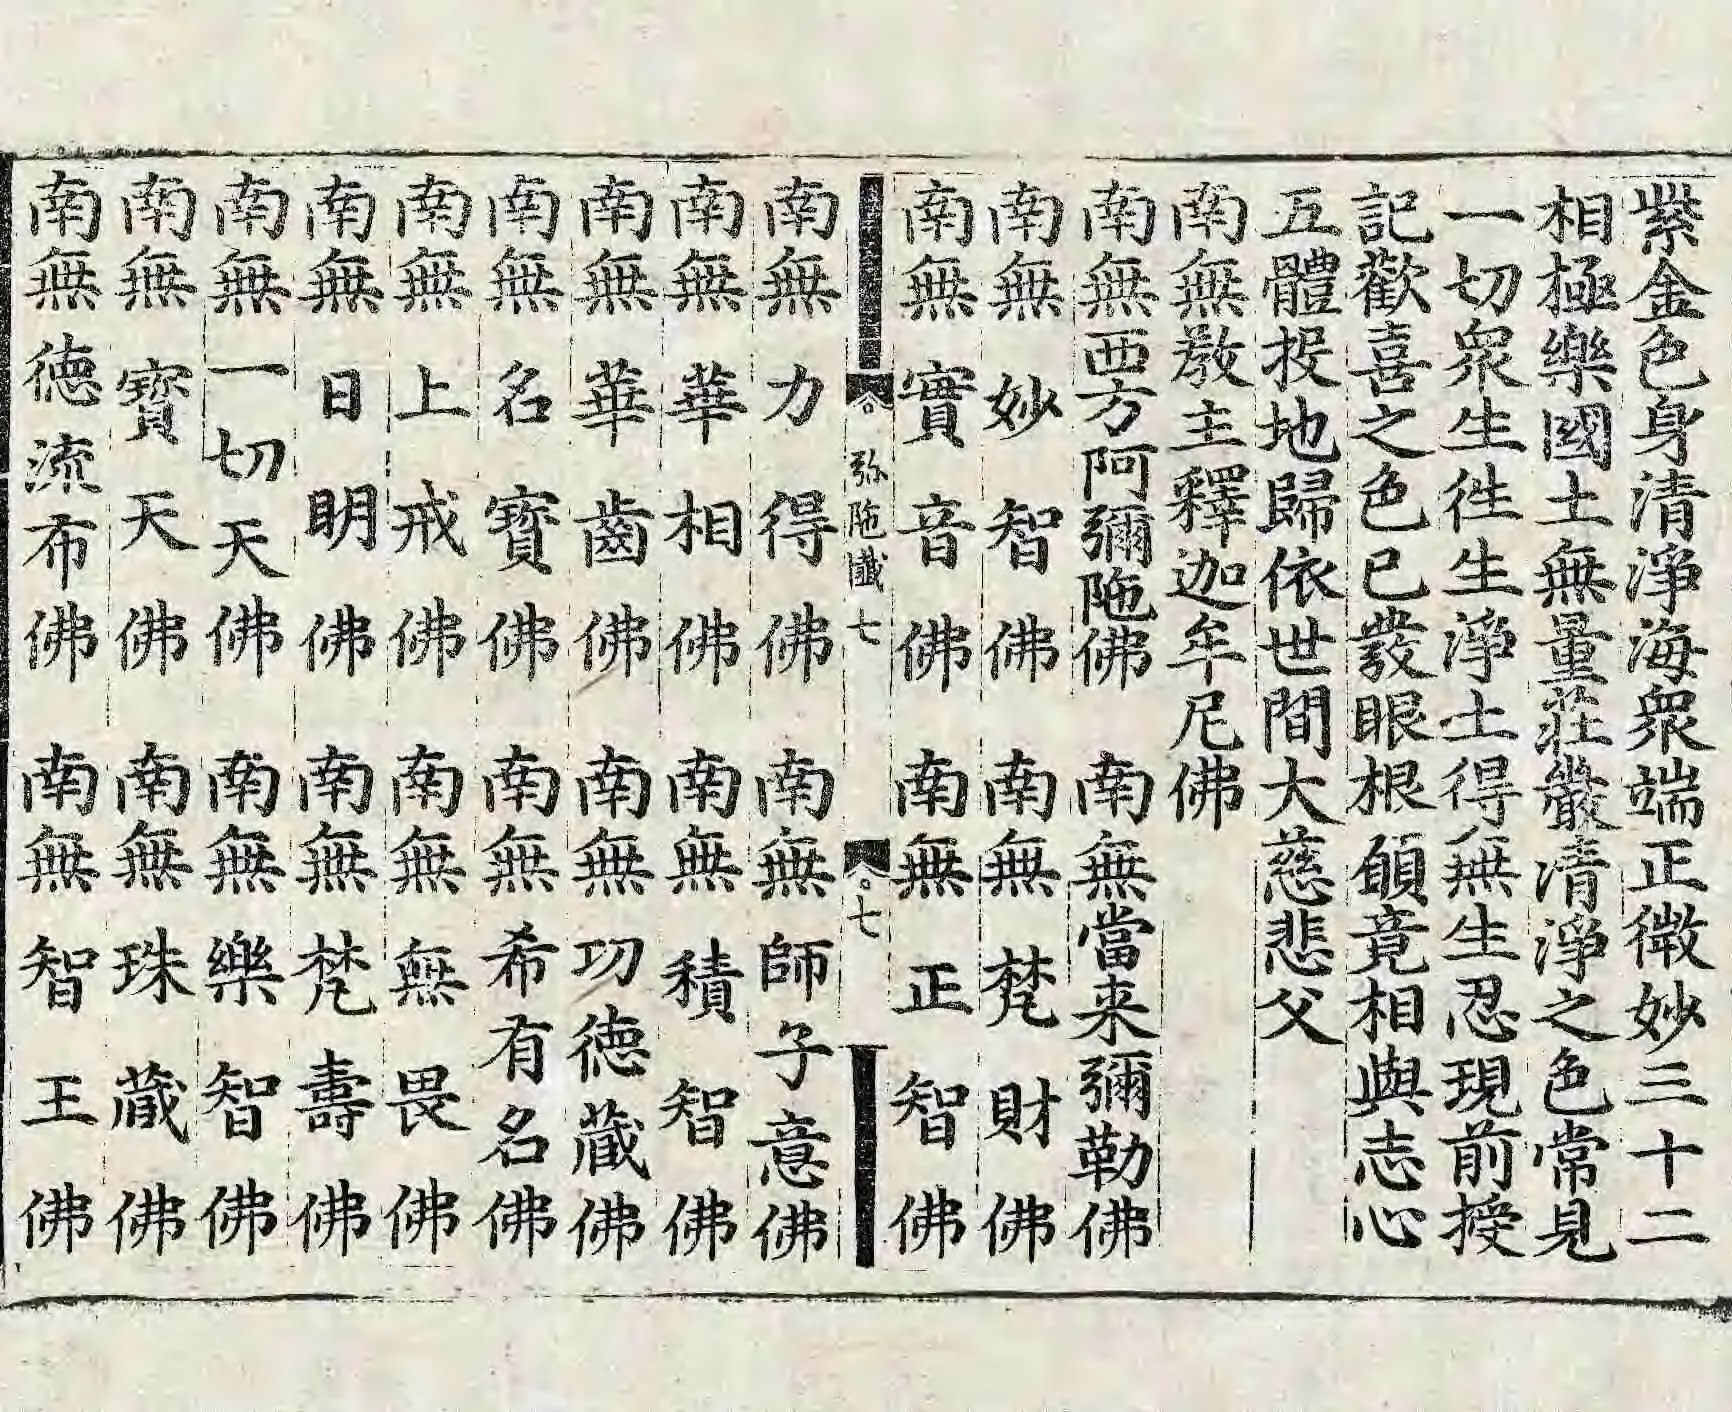 紫金色身清淨海衆端正微妙三十二
相極樂國土無量莊嚴清淨之色常見
一切衆生徃生淨土得無生忍現前授
記歡喜之色已發眼根頠竟相與志心
五體投地歸依世間大慈悲父
南無敎主釋迦牟尼佛
南無西方阿彌陁佛 南無當来彌勒佛
南無妙智佛 南無梵財佛
南無實音佛 南無正智佛
弥陁懺七 七
南無力得佛 南無師子意佛
南無華相佛 南無積智佛
南無華齒佛 南無功德藏佛
南無名寳佛 南無希有名佛
南無上戒佛 南無無畏佛
南無日明佛 南無梵壽佛
南無一切天佛 南無樂智佛
南無寳天佛 南無珠藏佛
南無德流布佛 南無智王佛